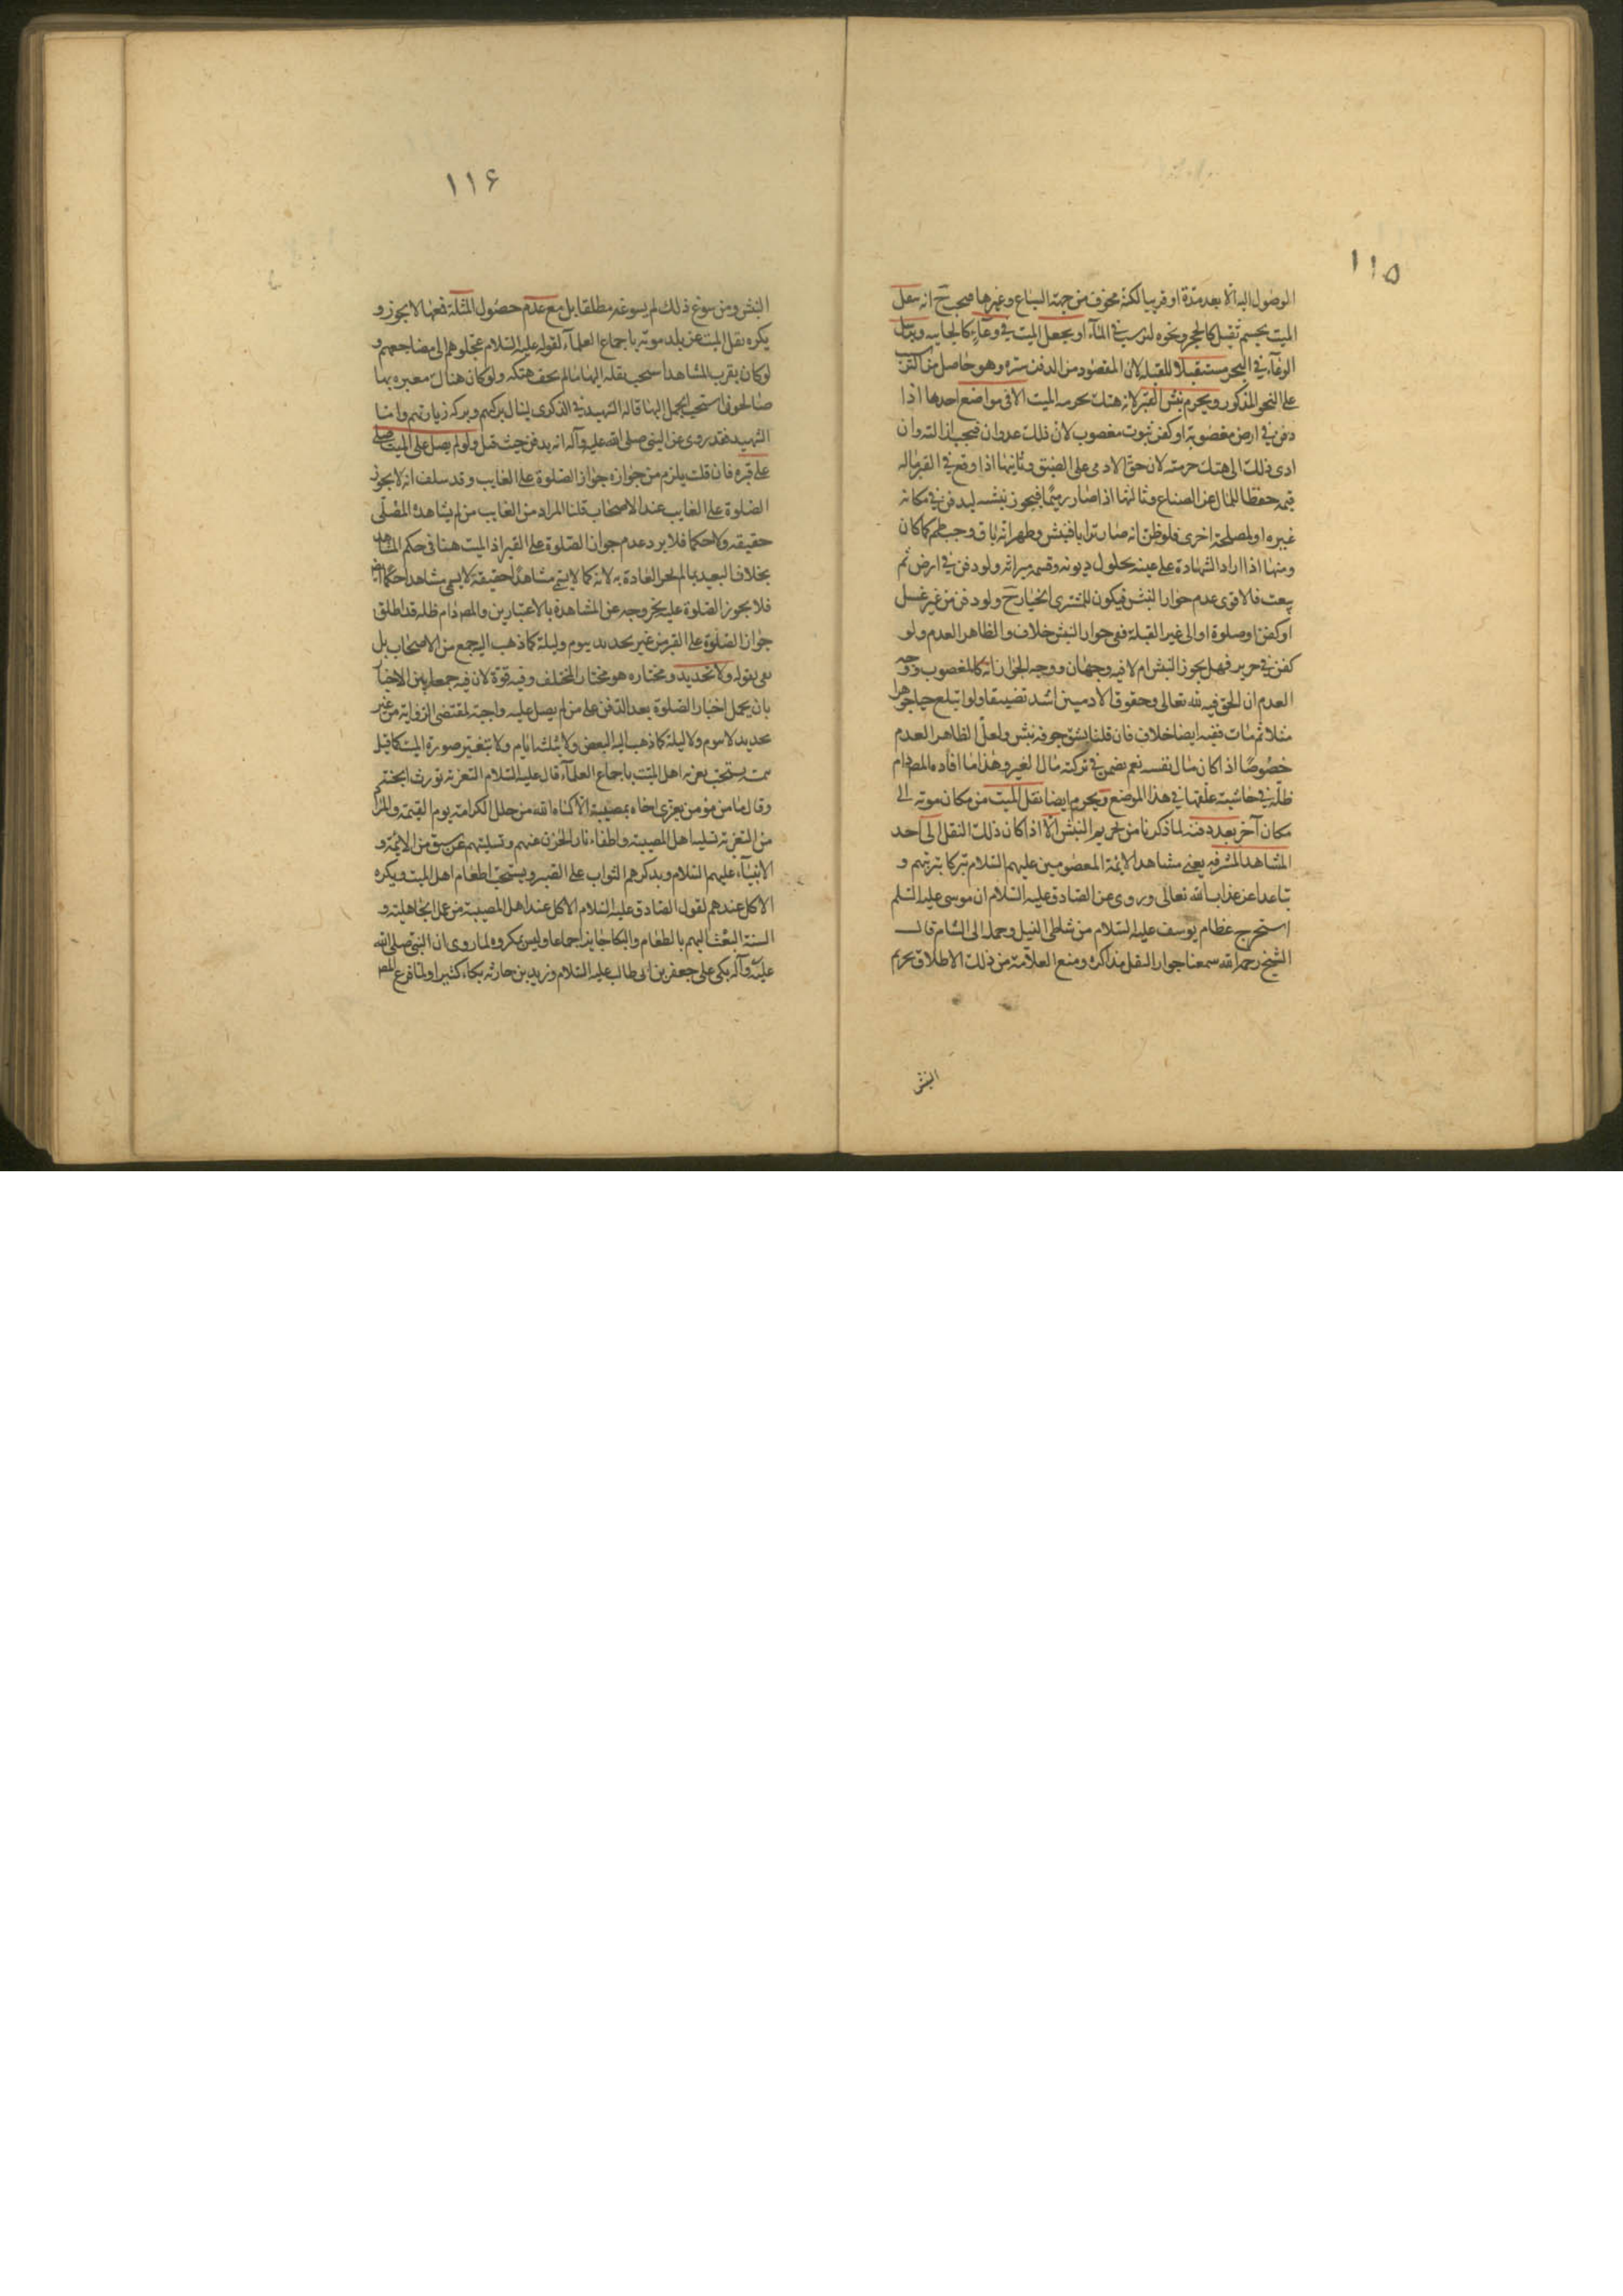 ١١٥
الوصول اليه الا بعد مدة او قريبا لكنه مخوف من جهة السباع وغيرها فيجب ح ان يثقل
الميت بجسم ثقيل كالحجر ونحوه ليرسب في الماء او يجعل الميت في وعاء كالخابيه وينزل
الوعاء في البحر مستقبلا للقبله لان المقصود من الدفن ستره وهو حاصل من
على النحو المذكور ويحرم نبش القبر لانه هتك لحرمه الميت الا في مواضع احدها اذا
دفن في ارض مغصوبة او كفن بثوب مغصوب لان ذلك عدوان فيجب ازالته وان
ادى ذلك الى هتك حرمته لان حق الادمي على الضيق وثانيها اذا وقع في القبر ماله
قيمه حفظا للمال عن الضياع وثالثها اذا صار رميما فيجوز نبشه ليدفن في مكانه
غيره او لمصلحة اخرى فلو ظن انه صار ترابا فنبش وظهر انه باق وجب طمه كما كان
ومنها اذا اراد الشهادة على عينه بحلول ديونه وقسمه ميراثه ولو دفن في ارض ثم
بيعت فالاقوى عدم جواز النبش فيكون للمشتري الخيار ح ولو دفن من غير غسل
او كفن او صلوة او الى غير القبلة ففي جواز النبش خلاف والظاهر العدم ولو
كفن في حرير فهل يجوز النبش ام لا فيه وجهان ووجه الجواز انه كالمغصوب ووجه
العدم ان الحق فيه لله تعالى وحقوق الادميين اشد تضييقا ولو ابتلع حيا جوهرا
مثلا ثم مات ففيه ايضا خلاف فان قلنا يشق جوفه نبش ولعل الظاهر العدم
خصوصا اذا كان مال نفسه نعم يضمن في تركته مال الغير وهذا ما افاده المصدام
ظله في حاشيته علقها في هذا الموضع ويحرم ايضا نقل الميت من مكان موته الى
مكان آخر بعد دفنه لما ذكرنا من تحريم النبش الا اذا كان ذلك النقل الى احد
المشاهد المشرفه يعني مشاهد الايمة المعصومين عليهم السلام تبركا بتربتهم و
تباعدا عن عذاب الله تعالى وروى عن الصادق عليه السلام ان موسى عليه السلم
استخرج عظام يوسف عليه السلام من شاطى النيل وحمله الى الشام قال
الشيخ رحمه الله سمعنا جواز النقل مذاكره ومنع العلامة من ذلك الاطلاق تحريم
النبش
١١٦
النبش ومن سوغ ذلك لم يسوغه مطلقا بل مع عدم حصول المثلة فمعها لا يجوز و
يكره نقل الميت عن بلد موته باجماع العلماء لقوله عليه السلام عجلوهم الى مضاجعهم و
لو كان بقرب المشاهد استحب نقله اليها ما لم يخف هتكه ولو كان هناك مقبره بها
صالحون استحب الحمل اليها قاله الشهيد في الذكرى لينال بركتهم وبركه زيارتهم واما
الشهيد فقد روى عن النبي صلى الله عليه وآله انه يدفن حيث قتل ولو لم يصل على الميت صلى
على قبره فان قلت يلزم من جوازه جواز الصلوة على الغايب وقد سلف انه لا يجوز
الصلوة على الغايب عند الاصحاب قلنا المراد من الغايب من لم يشاهده المصلى
حقيقه ولا حكما فلا يرد عدم جواز الصلوة على القبر اذ الميت هنا في حكم المشاهد
بخلاف البعيد بما لم تجر العادة به لانه كما لا يسمى مشاهدا حقيقه لا يسمى مشاهدا حكما ايضا
فلا يجوز الصلوة عليه لخروجه عن المشاهدة بالاعتبارين والمصدام ظله قد اطلق
جواز الصلوة على القبر من غير تحديد بيوم وليلة كما ذهب اليه جمع من الاصحاب بل
نفى بقوله ولا تحديد ومختاره هو مختار المختلف وفيه قوة لان فيه جمعا بين الاخبار
بان يحمل اخبار الصلوة بعد الدفن على من لم يصل عليه واجبة لمقتضى الرواية من غير
تحديد لا بيوم ولا ليلة كما ذهب اليه البعض ولا بثلث ايام ولا بتغير صورة الميت كما قيل
يستحب تعزيه اهل الميت باجماع العلماء قال عليه السلام التعزيه تورث الجنة
وقال ما من مؤمن يعزى اخاه بمصيبة الا كساه الله من حلل الكرامة يوم القيمة والمراد
من التعزيه تسليه اهل المصيبة واطفاء نار الحزن عنهم وتسليتهم عن سبق من الايمة و
الانبياء عليهم السلام ويذكرهم الثواب على الصبر ويستحب اطعام اهل الميت ويكره
الاكل عندهم لقول الصادق عليه السلام الاكل عند اهل المصيبة من عمل الجاهلية و
السنة البعث اليهم بالطعام والبكا جايز اجماعا وليس بمكروه لما روى ان النبي صلى الله
عليه وآله بكى على جعفر بن ابى طالب عليه السلام وزيد بن حارثه بكاء كثيرا ولما فرغ المص